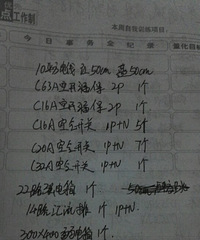 点工作制
本周自我训练项目
今日事务全纪录
量化目标
10# 50cm 50cm
C63A空开漏保 2P 1个
C16A空开漏保 2P 1个
C16A空气开关 1P+N 5个
C20A空气开关 1P+N 7个
C32A空气开关 1P N 1个
22路强电箱 1个
14路汇流排 1个 1P+N
300×400 电箱 1个